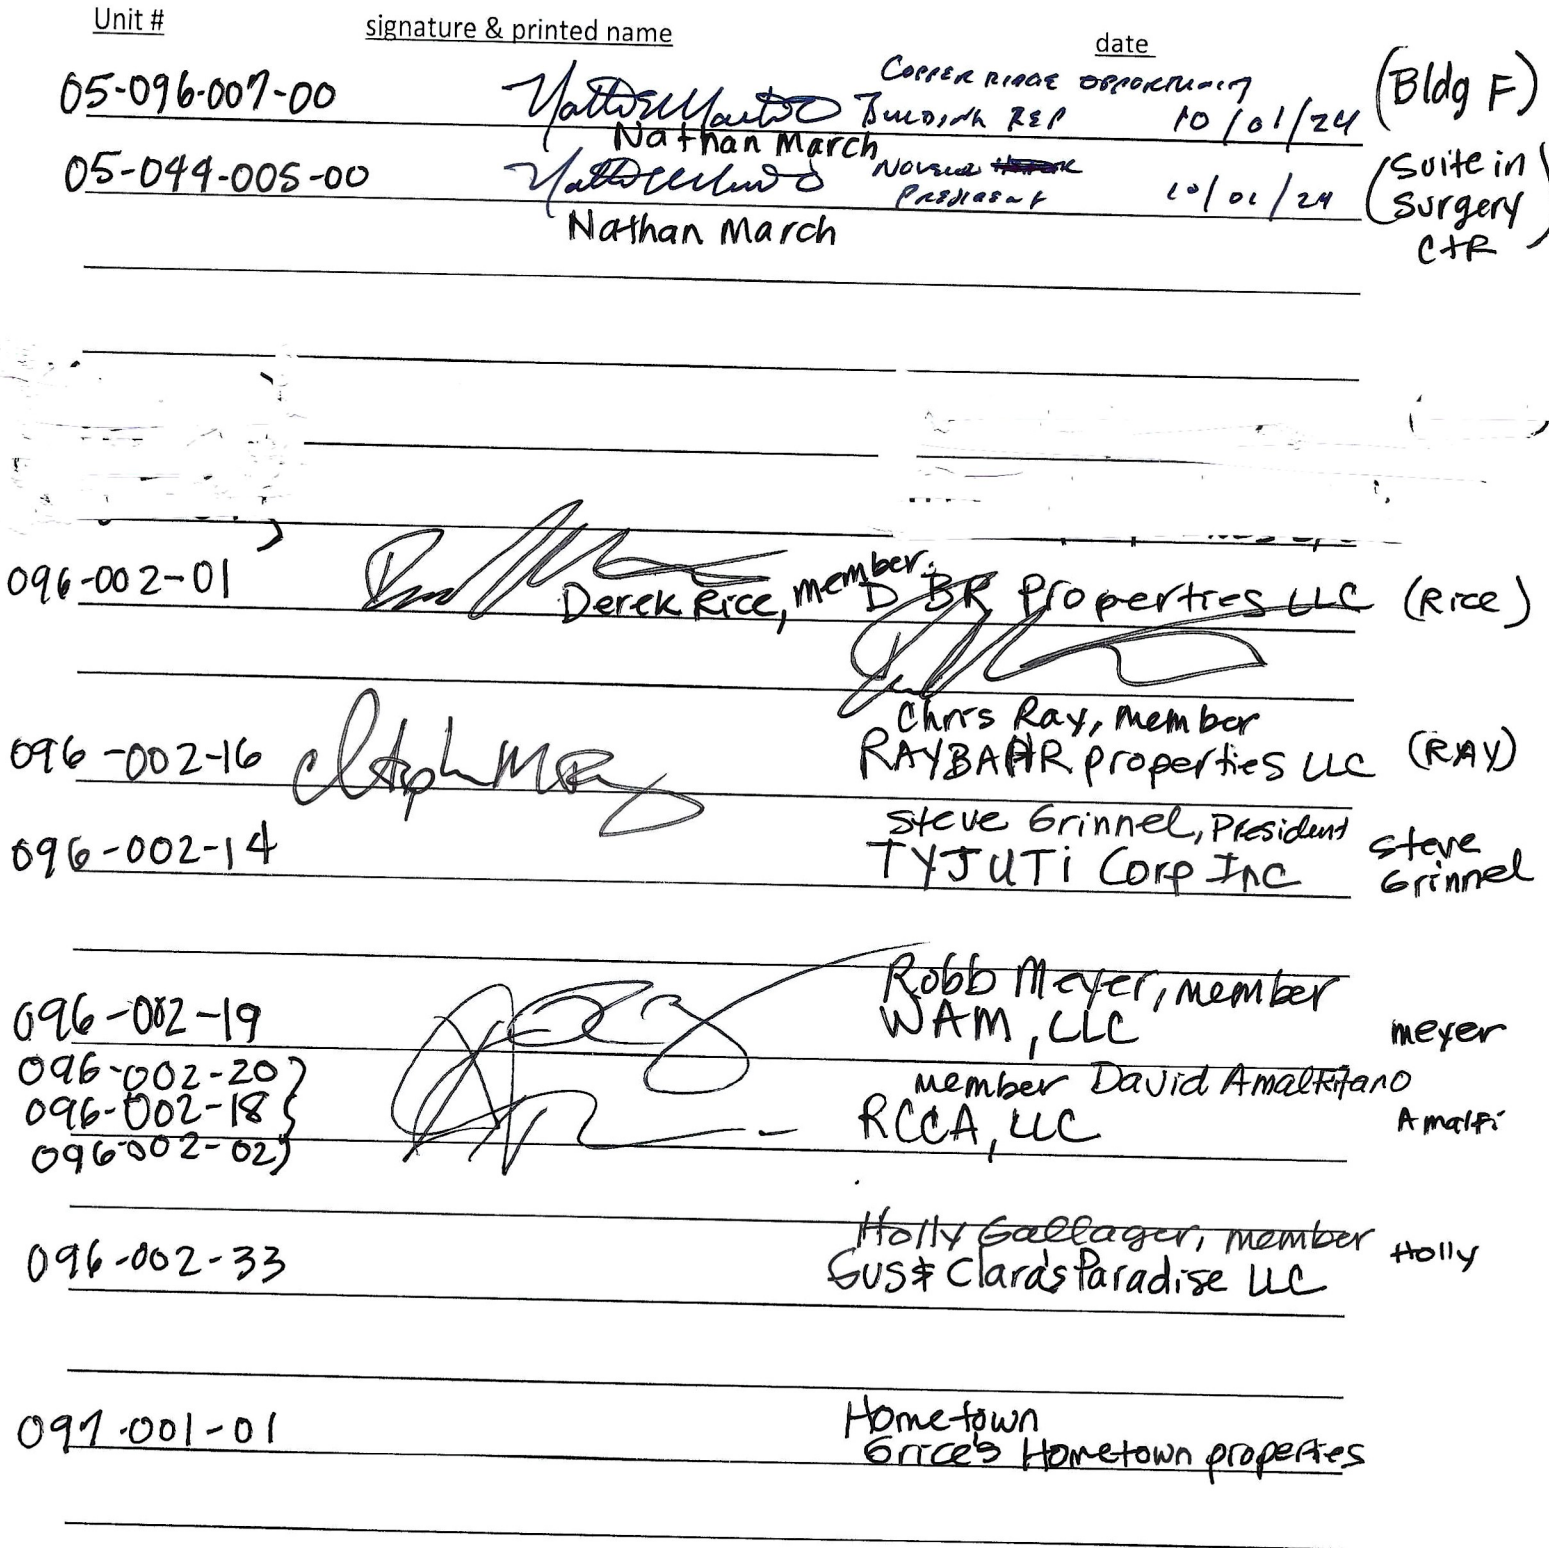 Unit # signature & printed name date
05-096-007-00 COPPER RIDGE OPPORTUNITY (Bldg F)
BUILDING REP 10/01/24
Nathan March
05-044-005-00 PRESIDENT 10/01/24 (Suite in Surgery CtR)
Nathan March
096-002-01 Derek Rice, member. D BR Properties LLC (Rice)
Chris Ray, member
096-002-16 RAYBAHR properties LLC (RAY)
Steve Grinnel, President
096-002-14 TYJUTi Corp Inc Steve Grinnel
Robb Meyer, member
096-002-19 WAM, LLC meyer
096-002-20 member David Amalfitano
096-002-18 RCCA, LLC Amalfi
096-002-02
Holly Gallager, member
096-002-33 Gus & Clara's Paradise LLC Holly
Hometown
097-001-01 Grice's Hometown properties